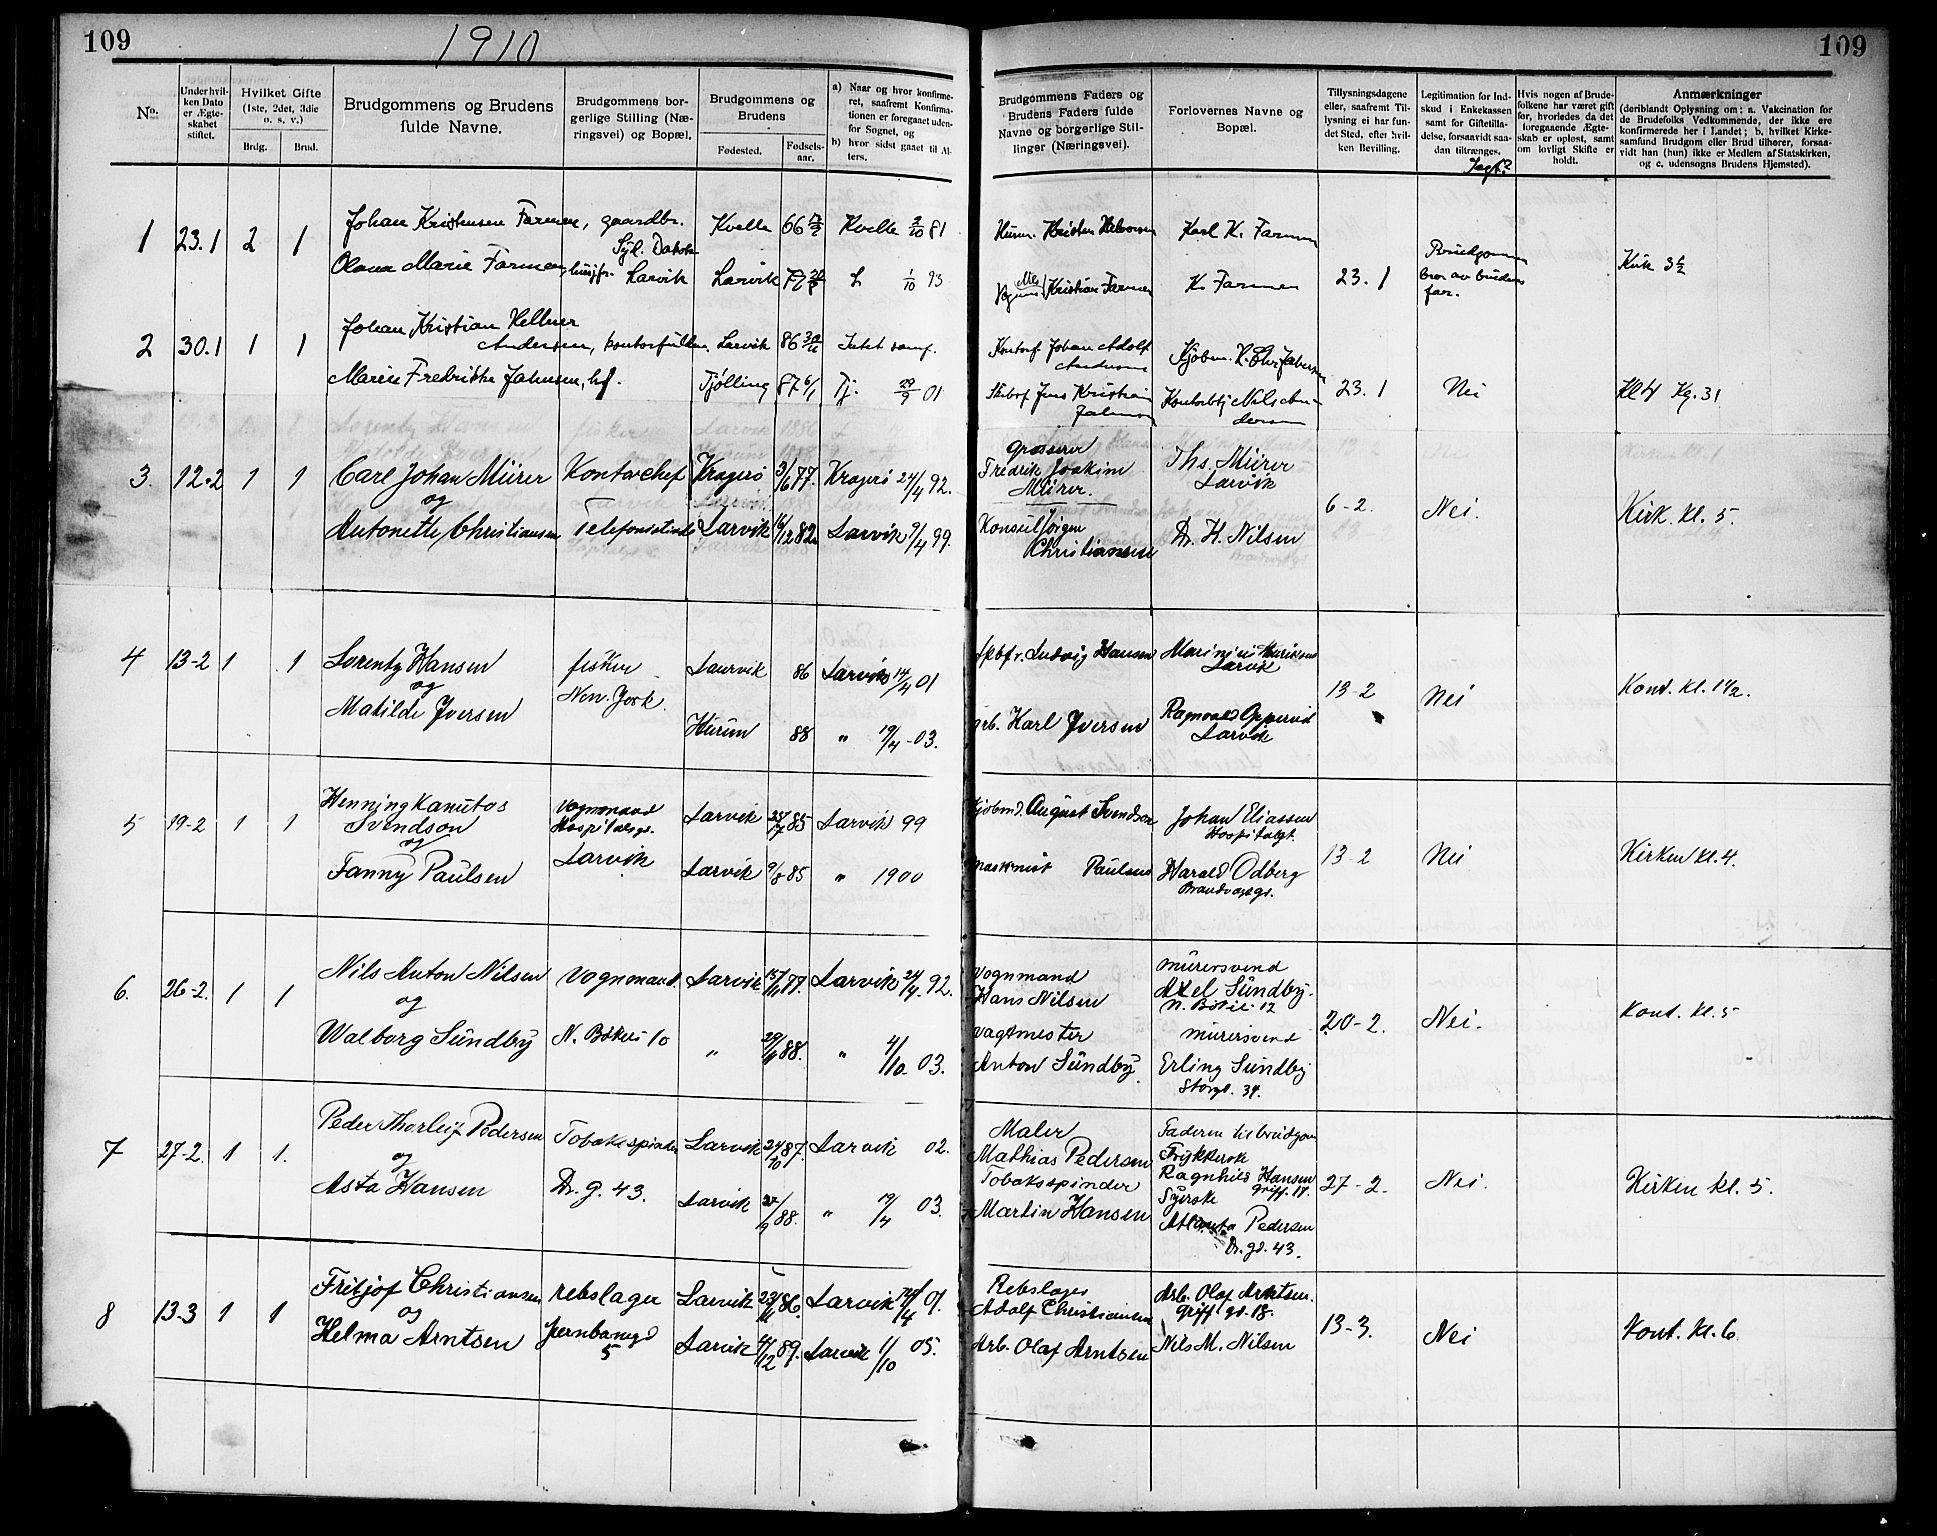 109
1910
109
No.
Under hvilken Dato er Ægteskabet stiftet.
Hvilket Gifte (1ste, 2det, 3die o. s. v.)
Brdg.
Brud.
Brudgommens og Brudens fulde Navne.
Brudgommens borgerlige Stilling (Næringsvei) og Bopæl.
Brudgommens og Brudens
Fødested.
Fødselsaar.
a) Naar og hvor konfirmeret, saafremt Konfirmationen er foregaaet udenfor Sognet, og
b) hvor sidst gaaet til Alters.
Brudgommens Faders og Brudens Faders fulde Navne og borgerlige Stillinger (Næringsvei).
Forlovernes Navne og Bopæl.
Tillysningsdagene eller, saafremt Tillysning ei har fundet Sted, efter hvilken Bevilling.
Legitimation for Indskud i Enkekassen samt for Giftetilladelse, forsaavidt saadan tiltrænges.
Hvis nogen af Brudefolkene har været gift før, hvorledes da det foregaaende Ægteskab er opløst, samt om lovligt Skifte er holdt.
Anmærkninger
(deriblandt Oplysning om: a. Vakcination for de Brudefolks Vedkommende, der ikke ere konfirmerede her i Landet; b. hvilket Kirkesamfund Brudgom eller Brud tilhører, forsaavidt han (hun) ikke er Medlem af Statskirken, og c. udensogns Brudens Hjemsted).
1 23.1 2 1 Johan Kristensen Farmen, gaardbr. Kvelle 66 Kvelle 2/10 81 Kristen Halvorsen Karl K. Farmen
Syd. Dakota
Olava Marie Farmen, Larvik Larvik L 1/10 93 Nils Kristian Farmen K. Farmen 23.1 Brudgommen bror av brudens far. Kirk
2 30.1 1 1 Johan Kristian Hellner
Andersen, Larvik 86 Johan Adolf Andersen
Marie Fredrikke Jahnsen, hf. Tjølling 87 6/1 Tj. 29/9 01 Jens Kristian Jahnsen Nils Andersen 23.1 Nei Kl. 4 Kg. 31
3. 12.2 1 1 Carl Johan Mürer Kontorchef Kragerö 3/6 77. Kragerö 24/4 92. Grosserer Fredrik Joakim Mürer. Ths. Mürer Larvik
og
Antonette Christiansen Telefonistinde Larvik 16/12 82 Larvik 9/4 99. Konsul Jørgen Christiansen Dr. H. Nilsen 6-2. Nei. Kirk. Kl. 5.
4 13-2 1 1 Lorentz Hansen fisker Laurvik 86 Larvik 14/4 01 Ludvig Hansen Larvik
og New. York.
Matilde Iversen Hurum 88 " 19/4-03. arb. Karl Iversen Ragnvald Larvik 13-2 Nei Kont. Kl. 1 1/2.
5 19-2 1 1 Henning Kanutos Svendson Vognmand Hospitalsgt. Larvik 25/7 85 Larvik 99 August Svendsen Johan Eliassen Hospitalgt.
og
Fanny Paulsen Larvik Larvik 9/8 85 " 1900 maskinist Paulsen Harald Odberg Brandvagtsgt. 13-2 Nei Kirken kl. 4.
6. 26-2. 1 1 Nils Anton Nilsen Vognmand. Larvik 15/11 77. Larvik 24/4. 92. Vognmand Hans Nilsen mürersvend Axel Sündby. N. Bökeli 12
og
Walborg Sündby N. Bökeli 10 " 29/6 88. " 4/10. 03. vagtmester Anton Sündby. mürersvend Erling Sündby Storgt. 34. 20-2. Nei. Kont. Kl. 5
7 27-2. 1 1. Peder Thorleif Pedersen Tobakspinder Larvik 24/10 87. Larvik 02. Maler Mathias Pedersen Faderen til brudgom
og
Asta Hansen Dr. g. 43. Larvik 88. " 19/4 03. Tobaksspinder Martin Hansen Ragnhild Hansen Griff. 17. Syerske Pedersen Dr. gd. 43. 27-2. Nei. Kirken Kl. 5.
8 13-3 1 1 Fritjof Christiansen rebslager Larvik 23/11 86. Larvik 01. Rebslager Adolf Christiansen Arb. Olaf Arntsen. Griff. gd. 18.
og
Helma Arntsen Jernbanegd 5 Larvik 4/12 89. Larvik 1/10 05. Arb. Olaf Arntsen Nils M. Nilsen 13-3. Nei Kont. Kl. 6